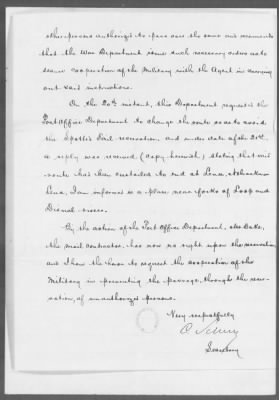 other persons authorized to pass over the same and recommends
that the War Department issue such necessary orders as to
secure cooperation of the Military with the Agent in carrying
out said instructions.
On the 20th instant, this Department requested the
Post Office Department to change the route so as to avoid
the Spotted Tail reservation, and under date of the 21st,
a reply was received (copy herewith) stating that said
route has been curtailed to end at Lena, Nebraska.
Lena, I am informed is a place near forks of Loup and
Dismal rivers.
By the action of the Post Office Department, also
the mail contractor, has now no right upon the reservation
and I have the honor to request the cooperation of the
Military in preventing the passage, through the reser-
vation, of unauthorized persons.
Very respectfully
C. Schurz
Secretary